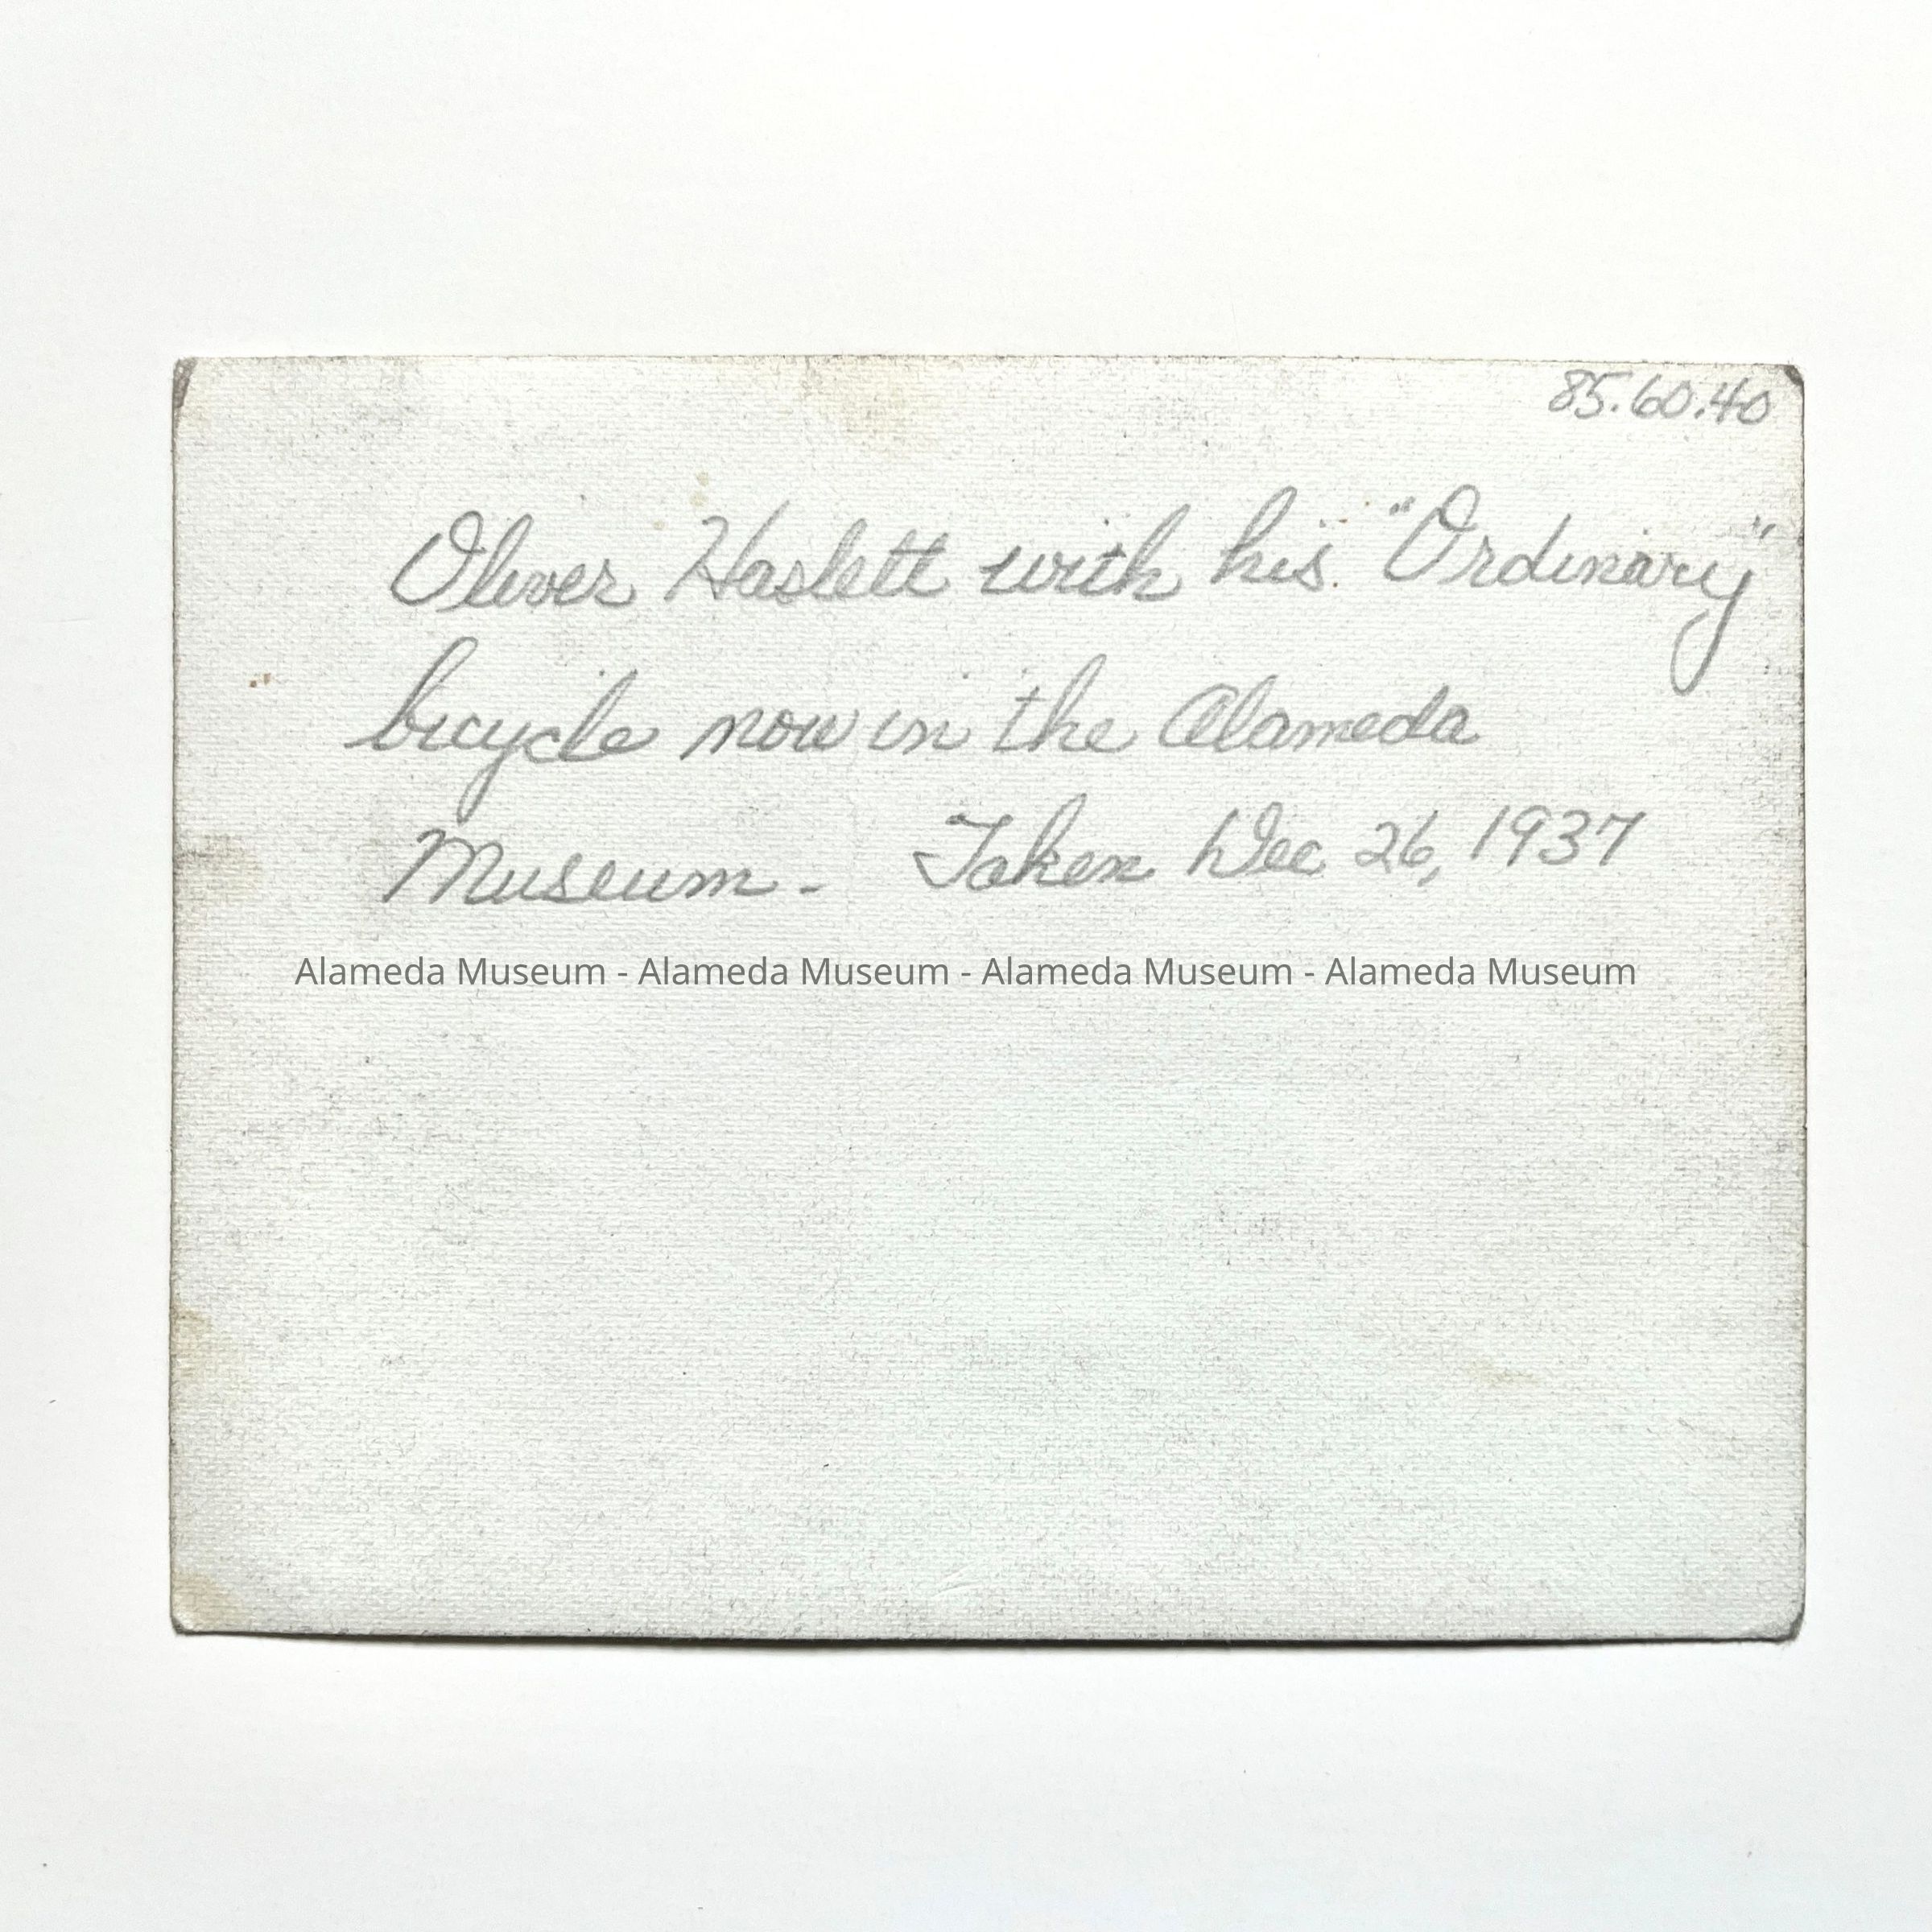 85.60.40
Oliver Haslett with his "Ordinary"
bicycle now in the Alameda
Museum. - Taken Dec 26, 1937
Alameda Museum - Alameda Museum - Alameda Museum - Alameda Museum